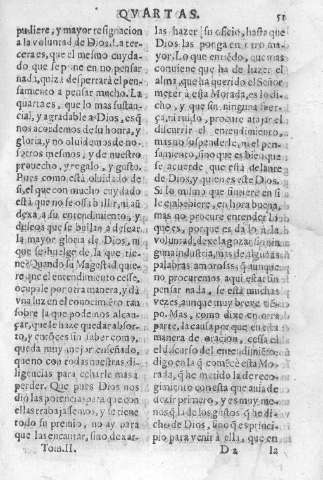 QVARTAS. 51
pudiere, y mayor resignacion
a la voluntad de Dios. La ter-
cera es, que el mesmo cuyda-
do que se pone en no pensar
nada, quizá despertará el pen-
samiento a pensar mucho. La
quarta es, que lo mas sustan-
cial, y agradable a Dios, es q̃
nos acordemos de su honra, y
gloria, y no oluidemos de no-
sotros mesmos, y de nuestro
prouecho, y regalo, y gusto.
Pues como está oluidado de
si, el que con mucho cuydado
está que no se osa bullir, ni aũ
dexa a su entendimiento, y
desseos que se bullan a dessear
la mayor gloria de Dios, ni
que se huelge de la que tie-
ne? Quando su Magestad quie-
re que el entendimiento cesse,
ocupale por otra manera, y dá
vna luz en el conocimiẽto tan
sobre la que podemos alcan-
çar, que le haze quedar absor-
to, y entõces sin saber como,
queda muy mejor enseñado,
que no con todas nuestras di-
ligencias para echarle mas a
perder. Que pues Dios nos
dió las potencias para que con
ellas trabajassemos, y se tiene
todo su premio, no ay para
que las encantar, sino dexar-
Tom. II.
las hazer su oficio, hasta que
Dios las ponga en otro ma-
yor. Lo que entiẽdo, que mas
conuiene que ha de hazer el
alma, que ha querido el Señor
meter a esta Morada, es lo di-
cho, y que sin ninguna fuer-
ça, ni ruido, procure atajar el
discurrir el entendimiento,
mas no suspenderle, ni el pen-
samiento, sino que es bien que
se acuerde que está delante
de Dios, y quien es este Dios.
Si lo mismo que siente en si
le embebiere, en hora buena,
mas no procure entender lo
que es, porque es dado a la
voluntad, dexela gozar sin nin-
guna industria, mas de algunas
palabras amorosas, q̃ aunque
no procuremos aqui estar sin
pensar nada, se está muchas
vezes, aunque muy breue tiem-
po. Mas, como dixe en otra
parte, la causa porque en esta
manera de oracion, cessa el
el discurso del entendimiẽto:
digo en la q̃ comẽcé esta Mo-
rada, q̃ he metido la de reco-
gimiento con esta que auia de
dezir primero, y es muy me-
nos q̃ la de los gustos q̃ he di-
cho de Dios, sino q̃ es princi-
pio para venir á ella, que en
D 2 la